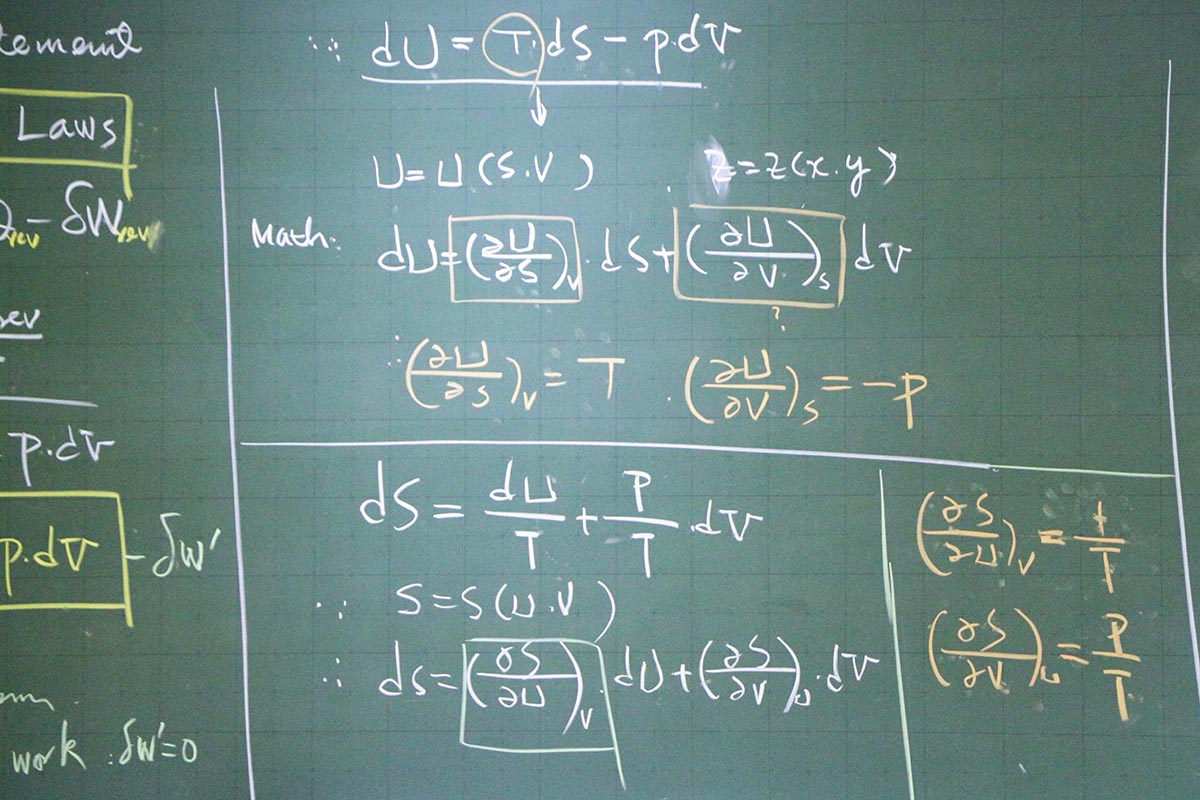 Laws
- δW_rev
p.dV
p.dV - δw'
work : δw'=0
∵ dU = T.dS - p.dV
U=U(S.V) Z=Z(x.y)
Math: dU=(∂U/∂S)_V.dS+(∂U/∂V)_S dV
?
∴(∂U/∂S)_V = T .(∂U/∂V)_S = -P
dS = dU/T + P/T .dV
∵ S=S(U.V)
∴ dS=(∂S/∂U)_V.dU+(∂S/∂V)_U.dV
(∂S/∂U)_V = 1/T
(∂S/∂V)_U = P/T